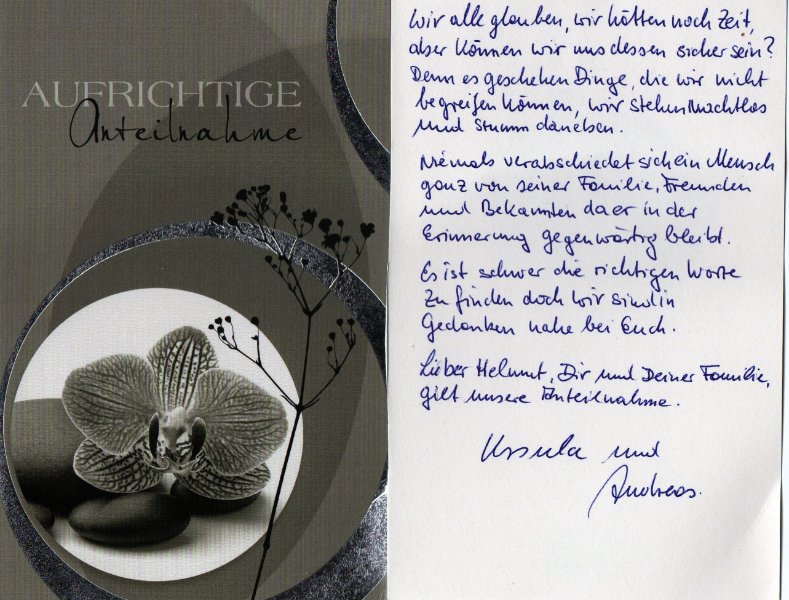 AUFRICHTIGE
Anteilnahme
Wir alle glauben, wir hätten noch Zeit,
aber können wir uns dessen sicher sein?
Denn es geschehen Dinge, die wir nicht
begreifen können, wir stehen machtlos
und stumm daneben.
Niemals verabschiedet sich ein Mensch
ganz von seiner Familie, Freunden
und Bekannten da er in der
Erinnerung gegenwärtig bleibt.
Es ist schwer die richtigen Worte
zu finden doch wir sind in
Gedanken nahe bei Euch.
Lieber Helmut, Dir und Deiner Familie,
gilt unsere Anteilnahme.
Ursula und
Andreas.